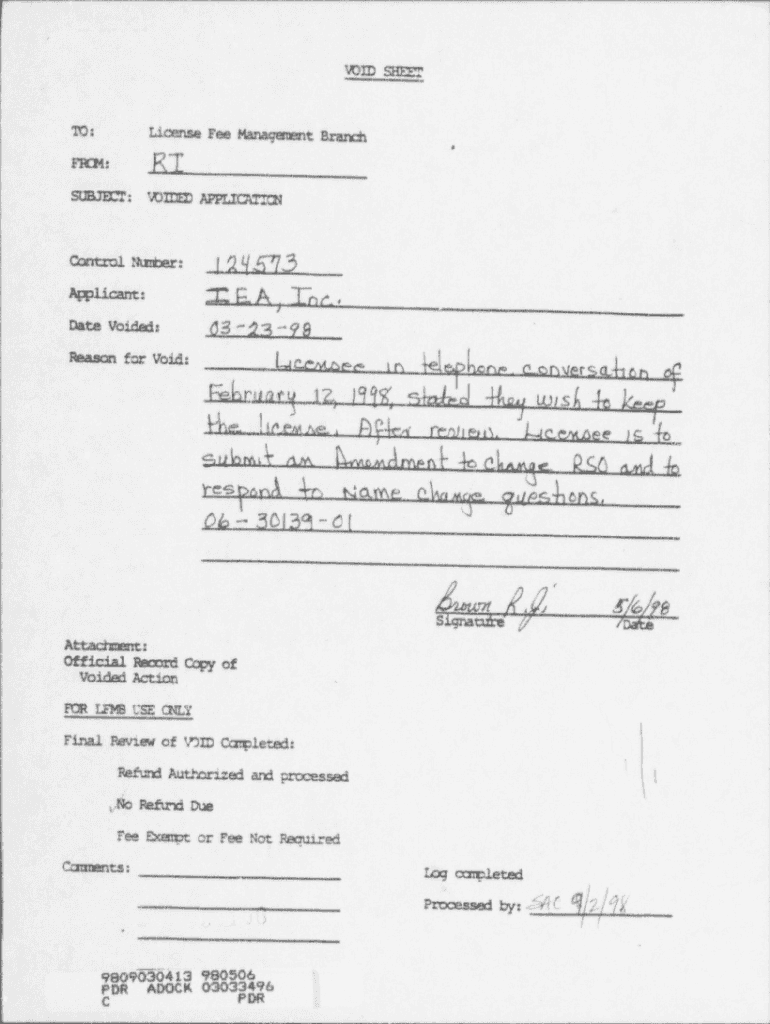 VOID SHEET
TO: License Fee Management Branch
FROM: RI
SUBJECT: VOIDED APPLICATION
Control Number: 124573
Applicant: IEA, Inc.
Date Voided: 03-23-98
Reason for Void: Licensee in telephone conversation of
February 12, 1998, stated they wish to keep
the license. After review. Licensee is to
submit an Amendment to change RSO and to
respond to Name change questions.
06-30139-01
Brown R. J. 5/6/98
Signature /Date
Attachment:
Official Record Copy of
Voided Action
FOR LFMB USE ONLY
Final Review of VOID Completed:
Refund Authorized and processed
No Refund Due
Fee Exempt or Fee Not Required
Comments:
Log completed
Processed by: SAC 9/2/98
9809030413 980506
PDR ADOCK 03033496
C PDR